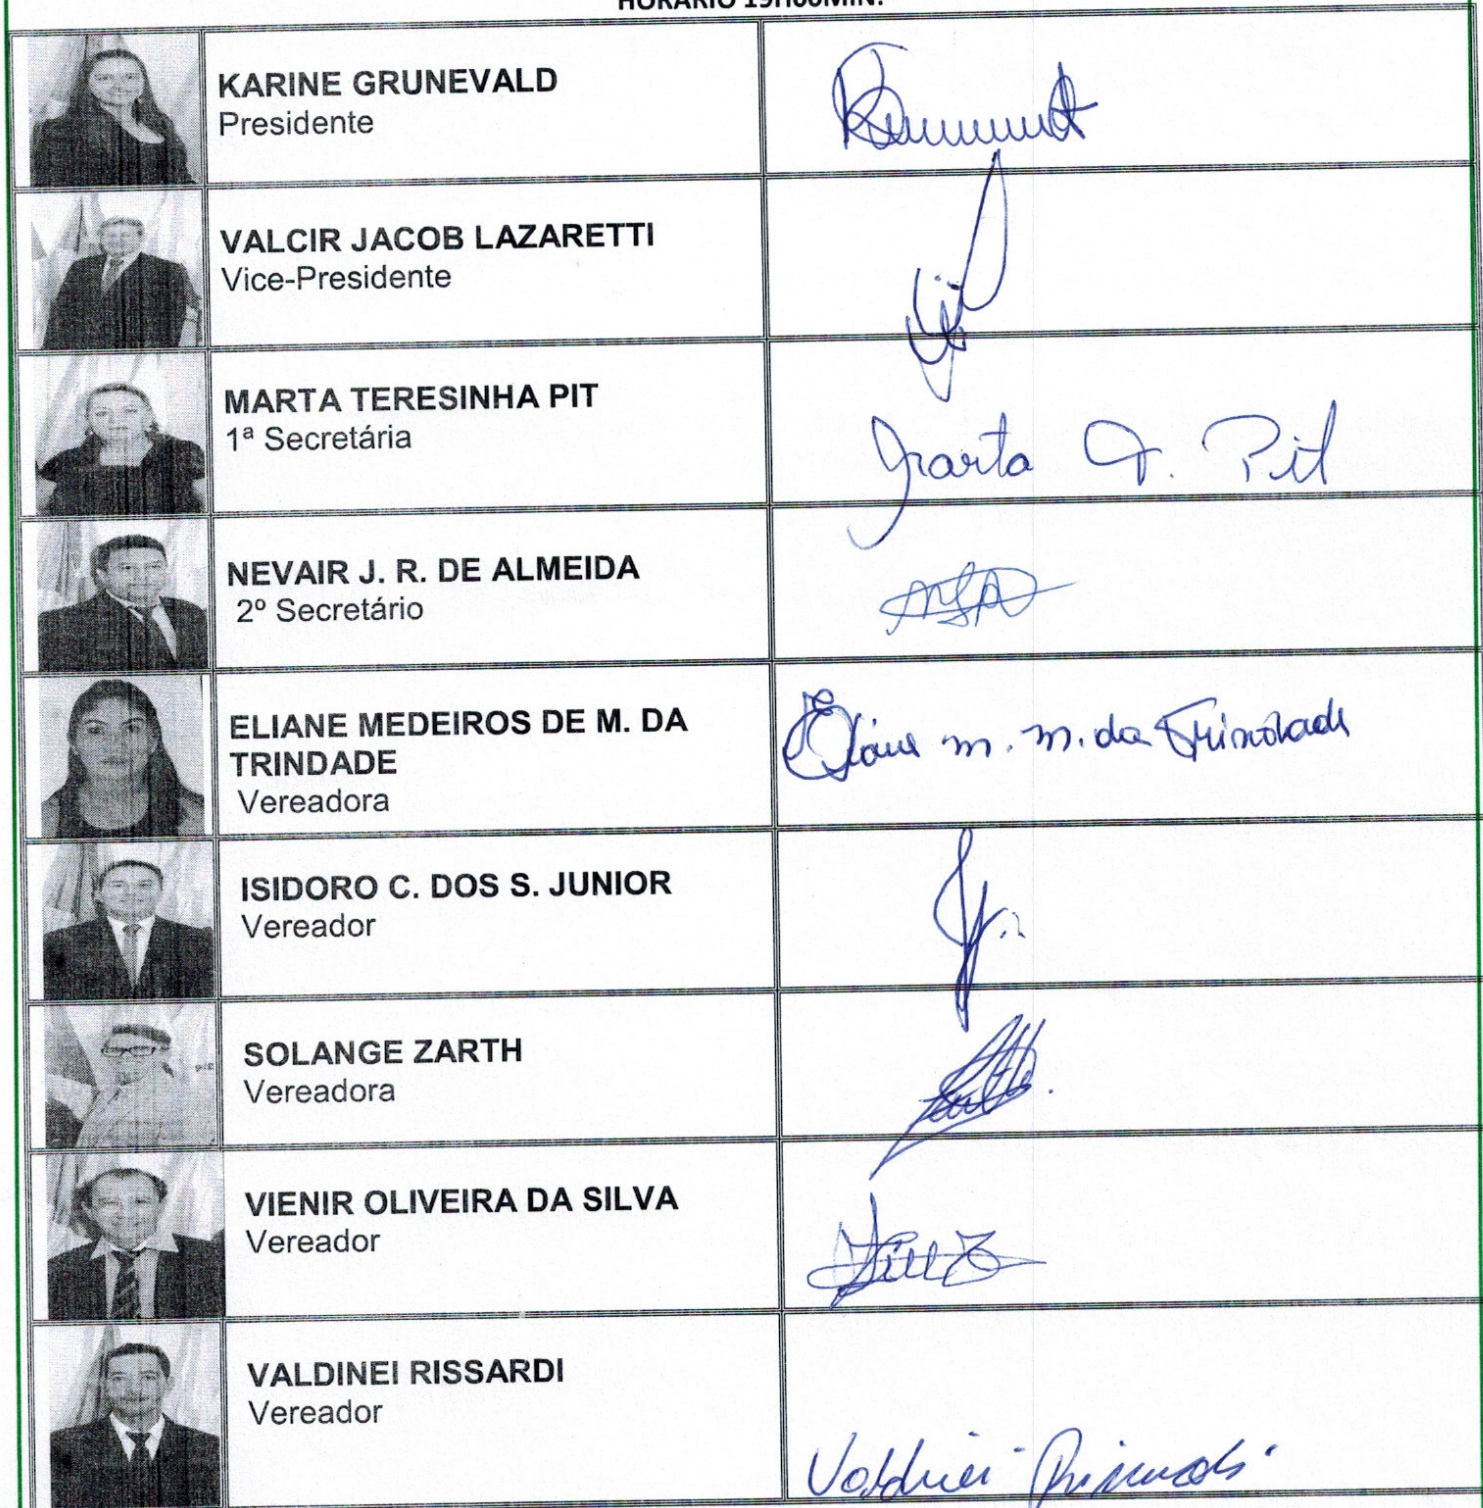 HORÁRIO 19H00MIN.
KARINE GRUNEVALD
Presidente
VALCIR JACOB LAZARETTI
Vice-Presidente
MARTA TERESINHA PIT
1ª Secretária
Marta T. Pit
NEVAIR J. R. DE ALMEIDA
2º Secretário
ELIANE MEDEIROS DE M. DA
TRINDADE
Vereadora
Eliane m. m. da Trindade
ISIDORO C. DOS S. JUNIOR
Vereador
SOLANGE ZARTH
Vereadora
VIENIR OLIVEIRA DA SILVA
Vereador
VALDINEI RISSARDI
Vereador
Valdinei Rissardi